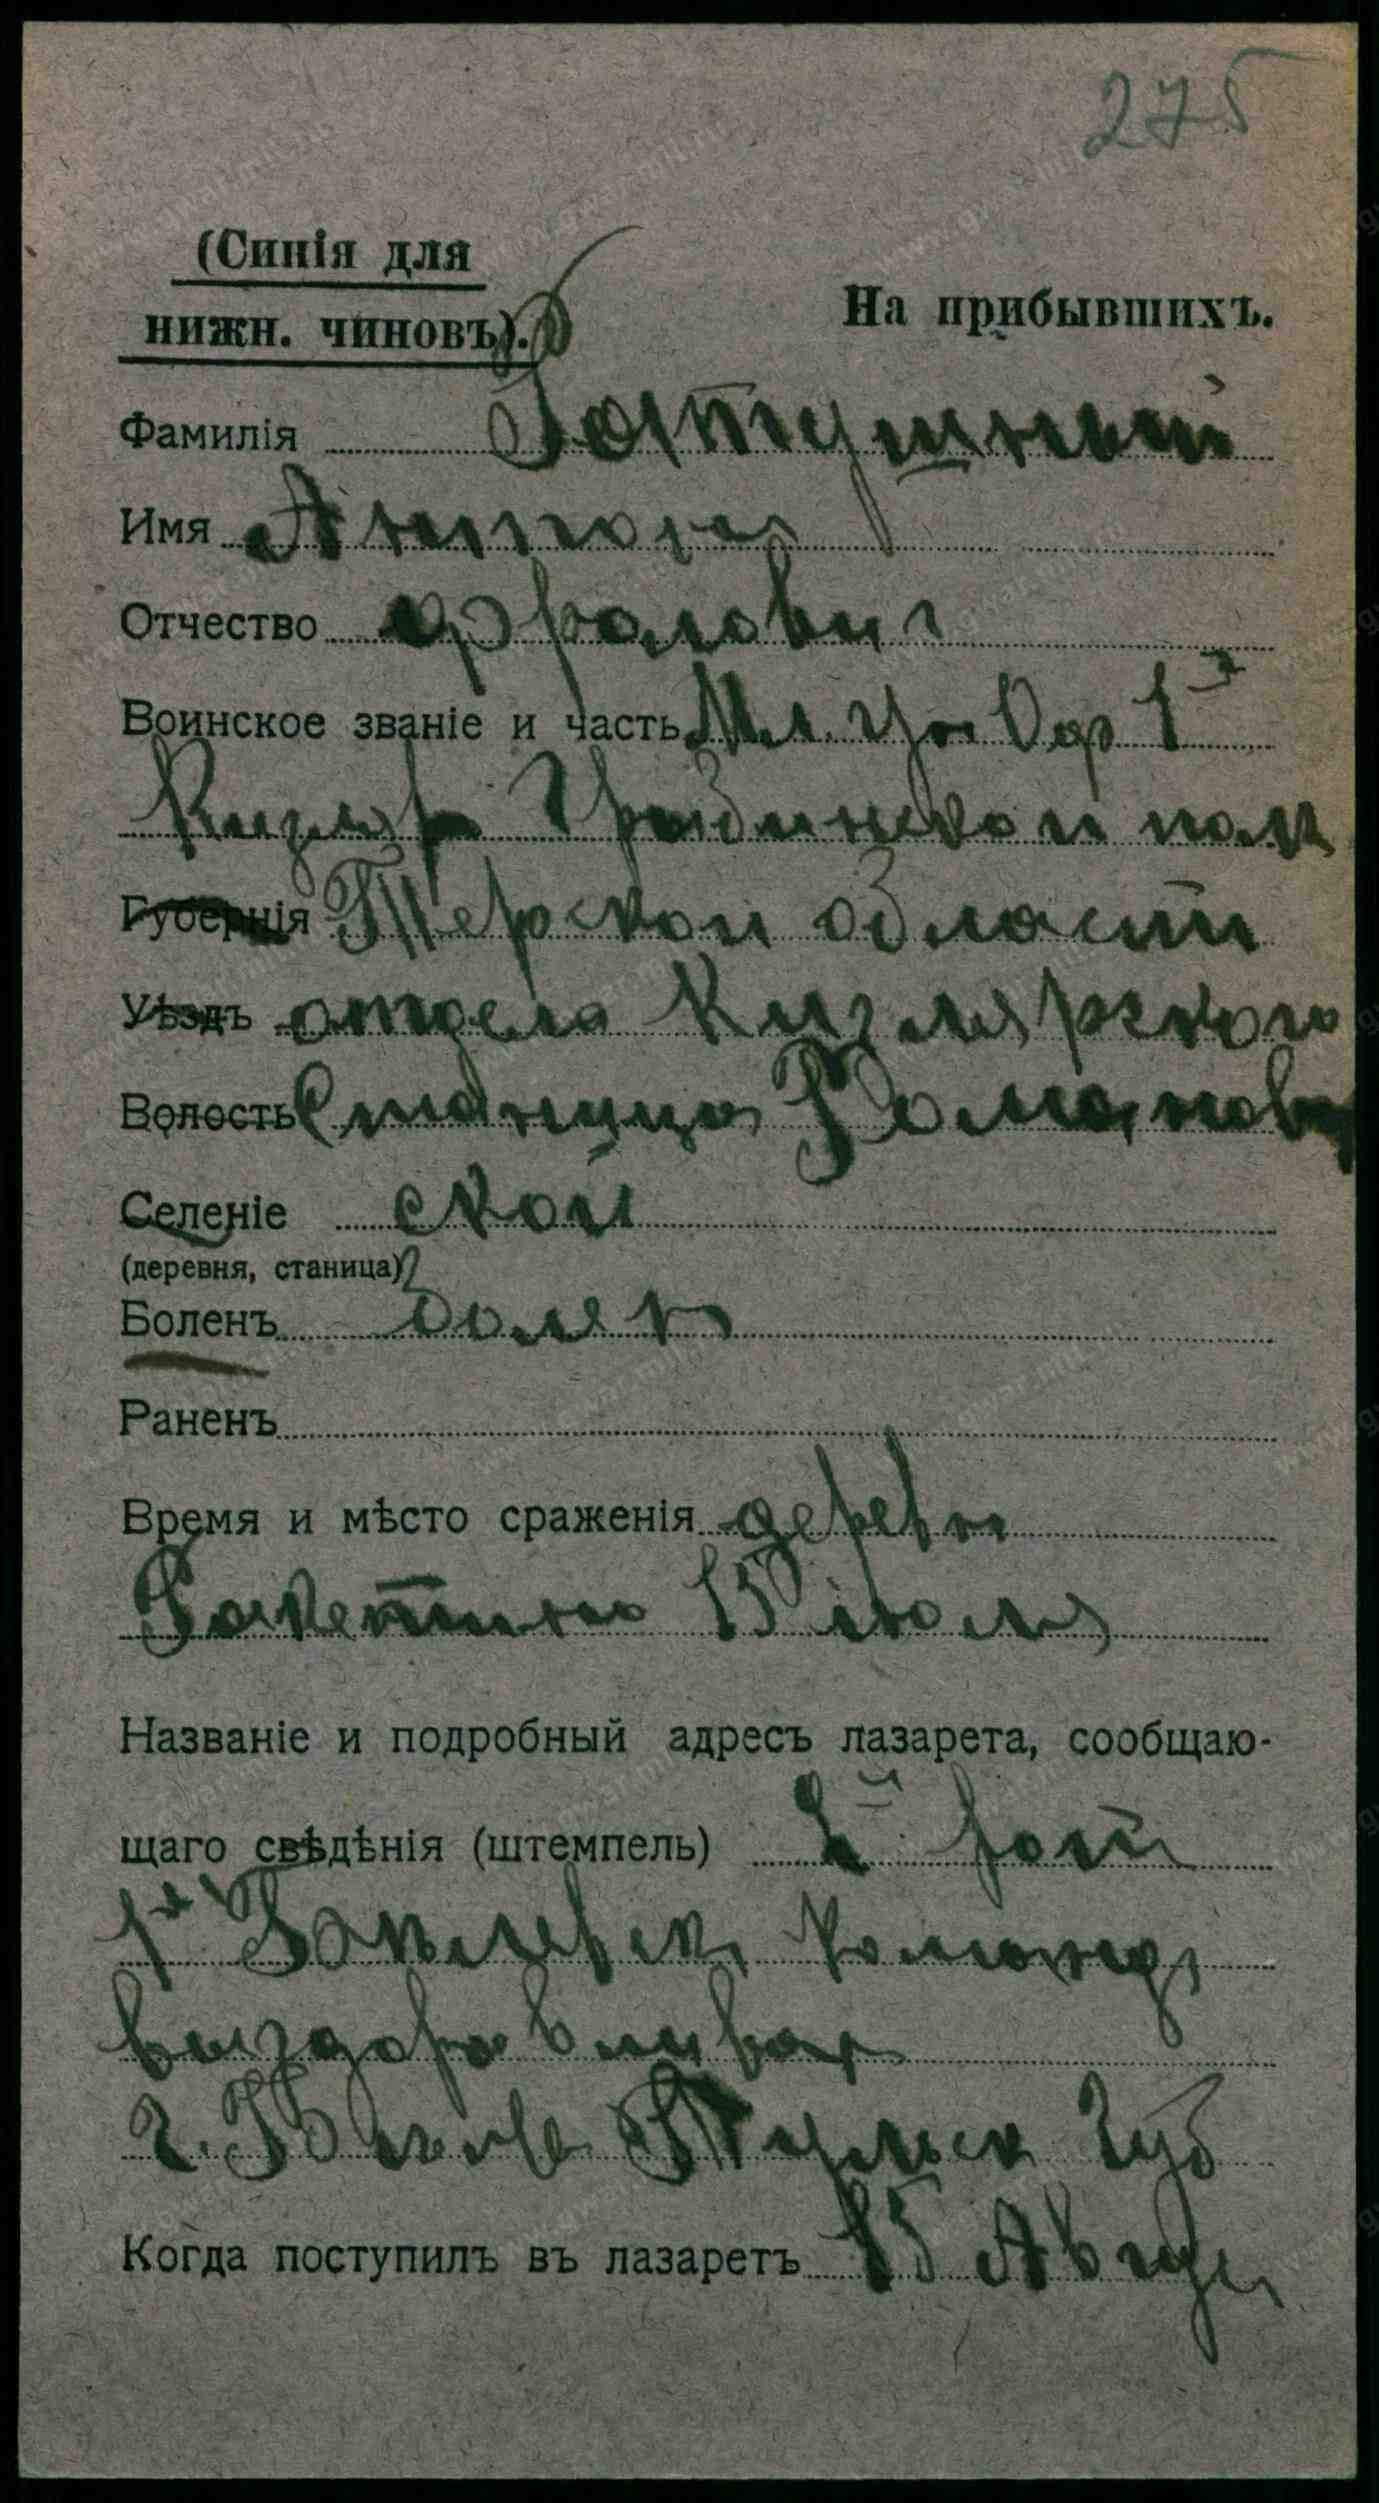 275
(Синія для
нижн. чиновъ).
На прибывшихъ.
Фамилія
Имя Антонъ
Отчество Фроловичъ
Воинское званіе и часть Мл. Ун Оф 1й
Кизляр Гребинской полк
Губернія Терской области
Уѣздъ отдела Кизлярского
Волость Станица Романов
Селеніе ской
(деревня, станица)
Боленъ болен
Раненъ
Время и мѣсто сраженія деревн
15 июля
Названіе и подробный адресъ лазарета, сообщаю-
щаго свѣдѣнія (штемпель) 2й рот
1й команд
выздоравливаю
г. Белев Тульск Губ
Когда поступилъ въ лазаретъ 15 Авгус